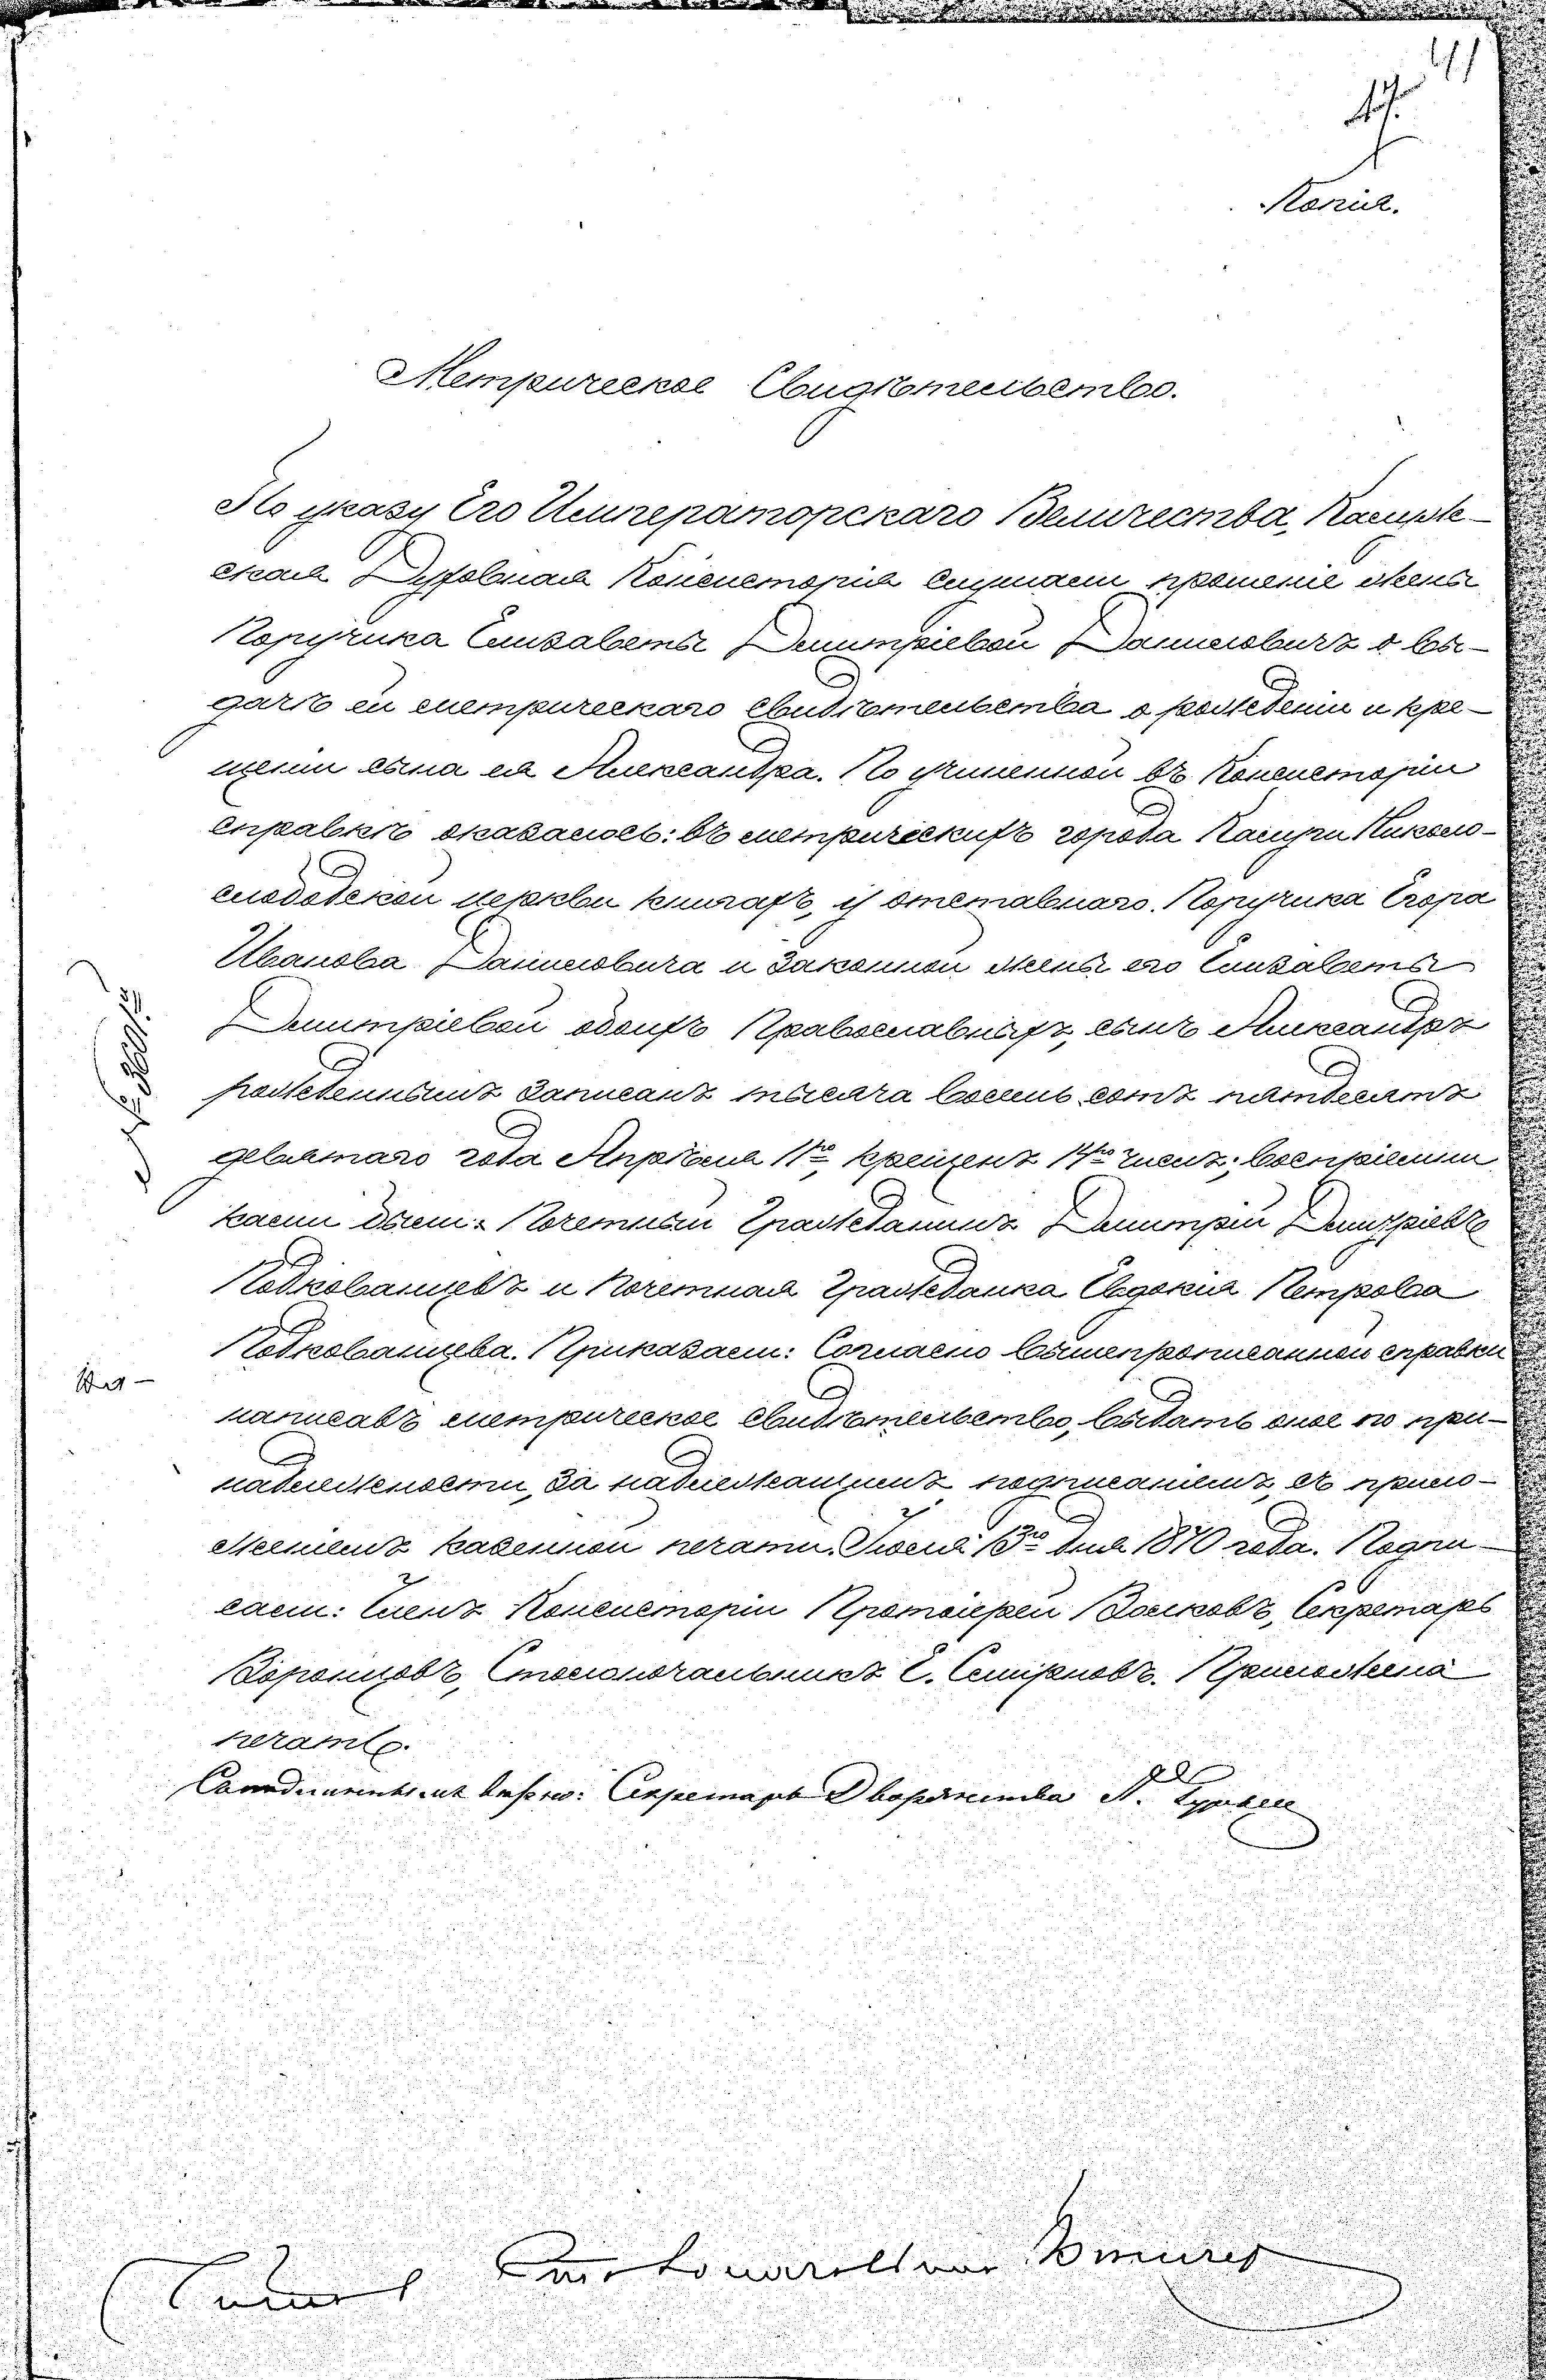 41
17.
Копія.
Метрическое Свидѣтельство.
По указу Его Императорскаго Величества, Калуж-
ская Духовная Консисторія слушали прошеніе жены
Поручика Елизаветы Дмитріевой Даниловичъ о вы-
дачѣ ей метрическаго свидѣтельства о рожденіи и кре-
щеніи сына ея Александра. По учиненной въ Консисторіи
справкѣ оказалось: въ метрическихъ города Калуги Николо-
слободской церкви книгахъ, у отставнаго Поручика Егора
Иванова Даниловича и законной жены его Елизаветы
Дмитріевой обоихъ Православныхъ, сынъ Александръ
рожденнымъ записанъ тысяча восемь сотъ пятдесятъ
девятаго года Апрѣля 11го, крещенъ 14го числъ; воспріемни
ками были: Почетный Гражданинъ Дмитрій Дмитріевъ
Подкованцевъ и Почетная Гражданка Евдокія Петрова
Подкованцева. Приказали: Согласно вышепрописанной справки
написавъ метрическое свидѣтельство, выдать оное по при-
надлежности, за надлежащимъ подписаніемъ, съ прило-
женіемъ казенной печати. Іюля 13го дня 1870 года. Подпи-
сали: Членъ Консисторіи Протоіерей Волковъ, Секретарь
Воронцовъ, Столоначальникъ Е. Смирновъ. Приложена
печать.
№ 3601й
Секретарь Дворянства